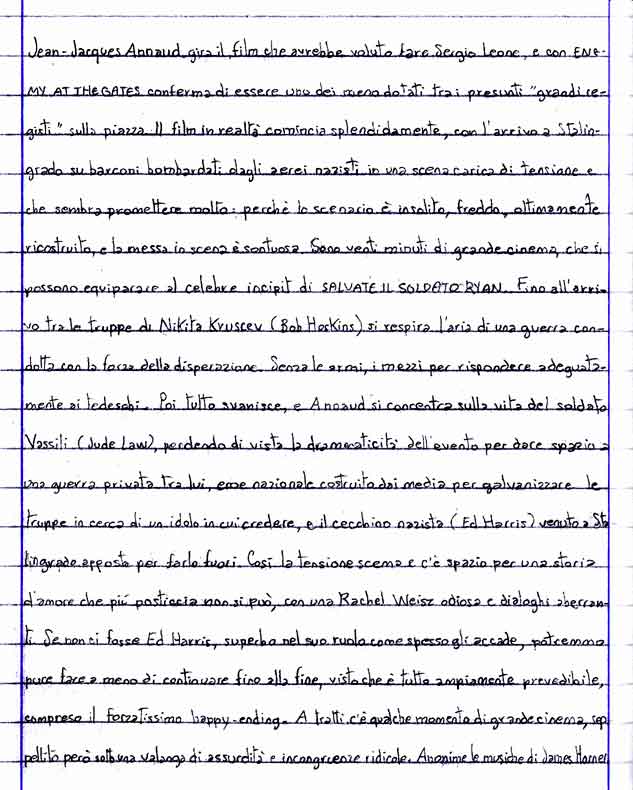 Jean-Jacques Annaud gira il film che avrebbe voluto fare Sergio Leone, e con ENE-
MY AT THE GATES conferma di essere uno dei meno dotati tra i presunti "grandi re-
gisti" sulla piazza. Il film in realtà comincia splendidamente, con l'arrivo a Stalin-
grado su barconi bombardati dagli aerei nazisti in una scena carica di tensione e
che sembra promettere molto: perchè lo scenario è insolito, freddo, ottimamente
ricostruito, e la messa in scena è sontuosa. Sono venti minuti di grande cinema, che si
possono equiparare al celebre incipit di SALVATE IL SOLDATO RYAN. Fino all'arri-
vo tra le truppe di Nikita Kruscev (Bob Hoskins) si respira l'aria di una guerra con-
dotta con la forza della disperazione. Senza le armi, i mezzi per rispondere adeguata-
mente ai tedeschi. Poi tutto svanisce, e Annaud si concentra sulla vita del soldato
Vassili (Jude Law), perdendo di vista la drammaticità dell'evento per dare spazio a
una guerra privata tra lui, eroe nazionale costruito dai media per galvanizzare le
truppe in cerca di un idolo in cui credere, e il cecchino nazista (Ed Harris) venuto a Sta
lingrado apposta per farlo fuori. Così la tensione scema e c'è spazio per una storia
d'amore che più posticcia non si può, con una Rachel Weisz odiosa e dialoghi aberran-
ti. Se non ci fosse Ed Harris, superbo nel suo ruolo come spesso gli accade, potremmo
pure fare a meno di continuare fino alla fine, visto che è tutto ampiamente prevedibile,
compreso il forzatissimo happy-ending. A tratti c'è qualche momento di grande cinema, sep
pellito però sotto una valanga di assurdità e incongruenze ridicole. Anonime le musiche di James Horner